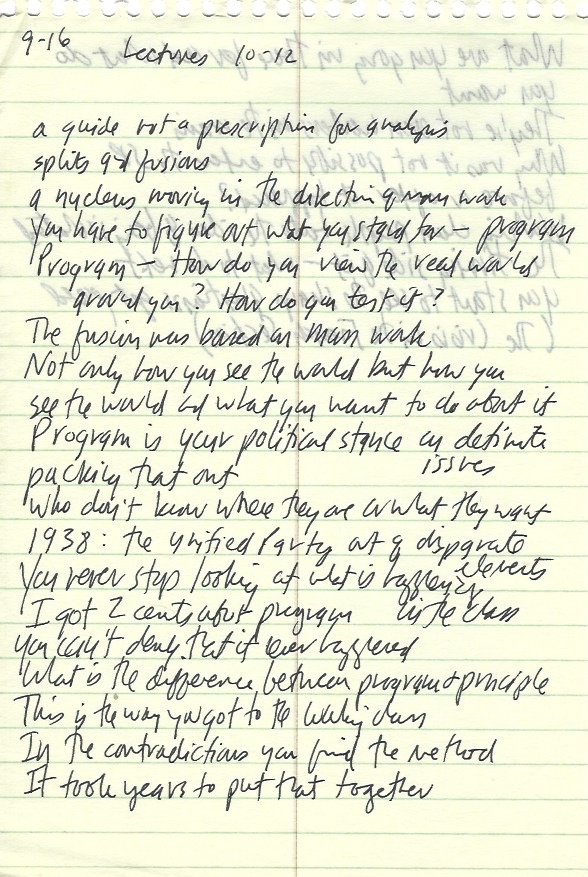 9-16 Lectures 10-12
a guide not a prescription for analysis
splits and fusions
a nucleus moving in the direction of mass work
You have to figure out what you stand for — program
Program — How do you view the real world
around you? How do you test it?
The fusion was based on mass work
Not only how you see the world but how you
see the world and what you want to do about it
Program is your political stance on definite
issues
packing that out
who don't know where they are or what they want
1938: the unified Party out of disparate
elements
You never stop looking at what is happening
in the class
I got 2 cents about program
you can't deny that it ever happened
What is the difference between program & principle
This is the way you got to the working class
In the contradictions you find the method
It took years to put that together